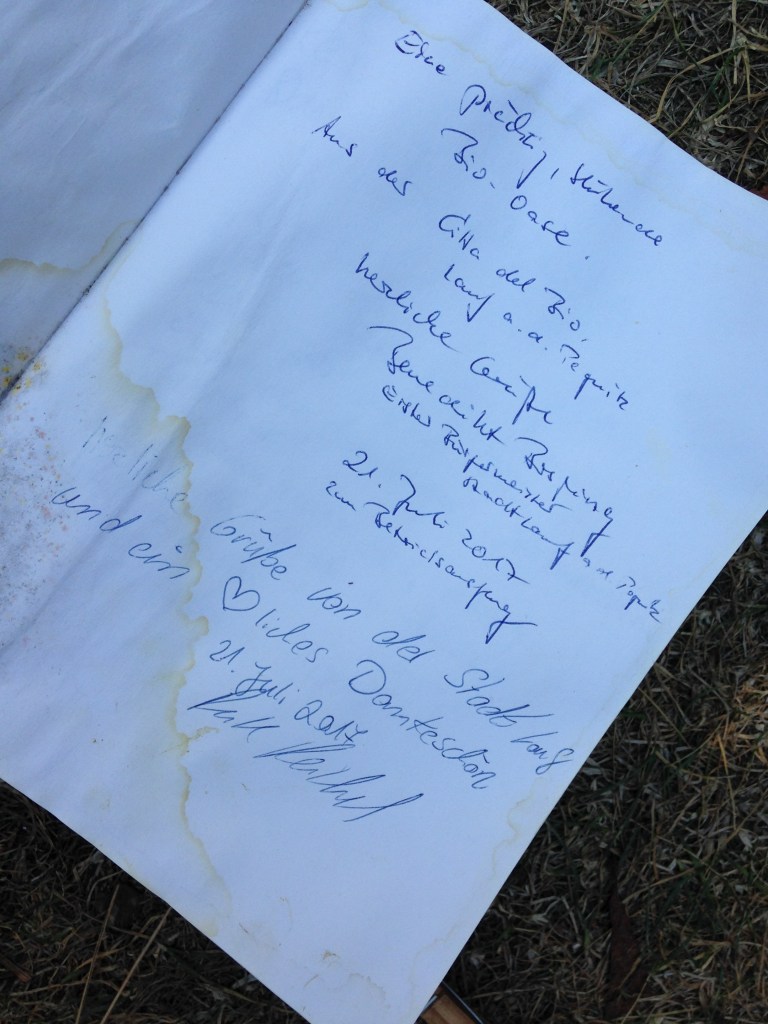 Eine prächtig, blühende
Bio-Oase.
Aus der Citta del Bio,
Lauf a.d. Pegnitz
herzliche Grüße
Benedikt Bisping
Erster Bürgermeister
Stadt Lauf a.d. Pegnitz
21. Juli 2017
zum Betriebsausflug
Grüße von der Stadt Lauf
und ein ♡liches Dankeschön
21. Juli 2017